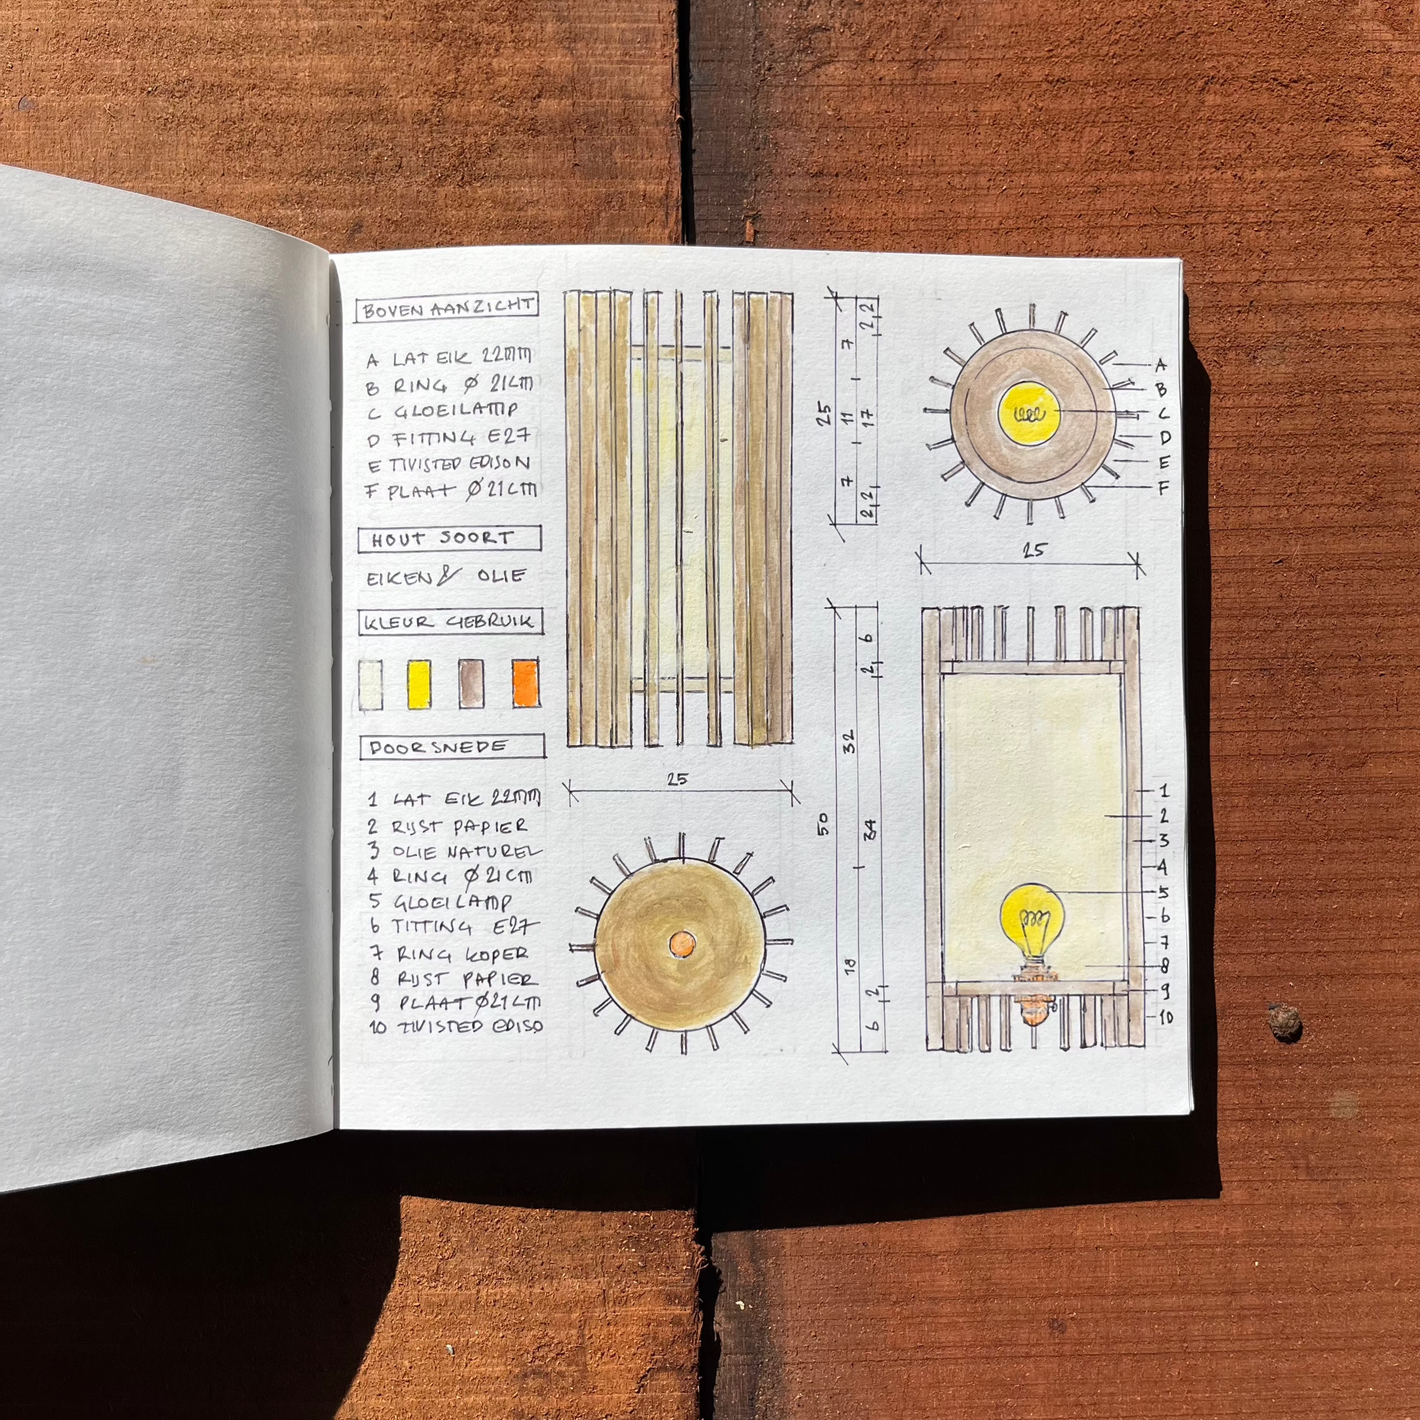 BOVEN AANZICHT
A LAT EIK 22MM
B RING Ø 21CM
C GLOEILAMP
D FITTING E27
E TWISTED EDISON
F PLAAT Ø21CM
HOUT SOORT
EIKEN & OLIE
KLEUR GEBRUIK
DOORSNEDE
1 LAT EIK 22MM
2 RIJST PAPIER
3 OLIE NATUREL
4 RING Ø21CM
5 GLOEILAMP
6 TITTING E27
7 RING KOPER
8 RIJST PAPIER
9 PLAAT Ø21CM
10 TWISTED EDISO
25
25
7 11 7
2 2 17 2 2
A
B
C
D
E
F
25
50
32 18
6 2 34 2 6
1
2
3
4
5
6
7
8
9
10